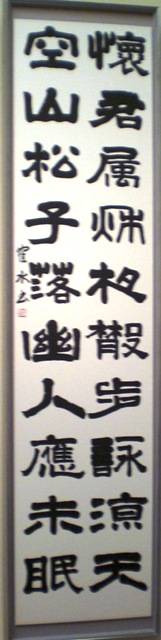 懷君属秌夜散步詠涼天
空山松子落幽人應未眠